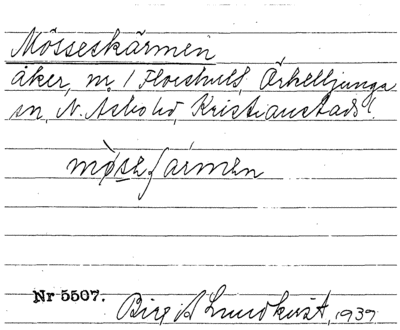 Mösseskärmen
åker, nr 1 Floeshult, Örkelljunga
sn, N. Åsbo hd, Kristianstads l.
møsesʃärmen
Nr 5507.
Birgit Lundkvist, 1939